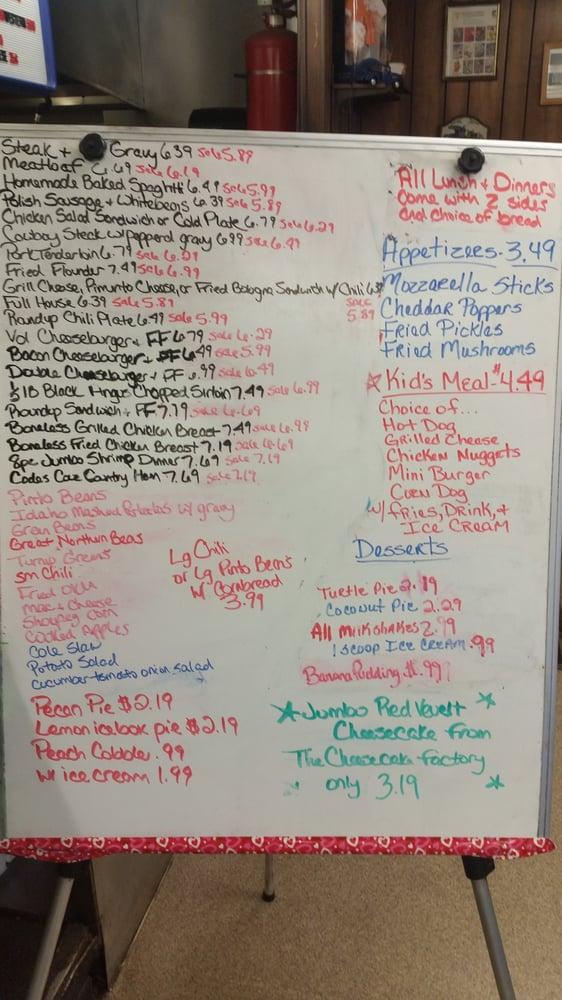 Steak + Gravy 6.39 sale 5.89
Meatloaf 6.69 sale 6.19
Homemade Baked Spaghtti 6.49 sale 5.99
Polish Sausage + Whitebeans 6.39 sale 5.89
Chicken Salad Sandwich or Cold Plate 6.79 sale 6.29
Cowboy Steak w/ pepperd gravy 6.99 sale 6.49
Pork Tenderloin 6.79 sale 6.29
Fried Flounder 7.49 sale 6.99
Grill Cheese, Pimunto Cheese, or Fried Bologna Sandwich w/ Chili
sale 5.89
Full House 6.39 sale 5.89
Roundup Chili Plate 6.49 sale 5.99
Vol Cheeseburger + FF 6.79 sale 6.29
Bacon Cheeseburger + FF 6.49 sale 5.99
Double Cheeseburger + FF 6.99 sale 6.49
1/2 lB Black Angus Chopped Sirloin 7.49 sale 6.99
Roundup Sandwich + FF 7.19 sale 6.69
Boneless Grilled Chicken Breast 7.49 sale 6.99
Boneless Fried Chicken Breast 7.19 sale 6.69
8pc Jumbo Shrimp Dinner 7.69 sale 7.19
Cades Cove Country Ham 7.69 sale 7.19
Pinto Beans
Idaho Mashed Potatoes w/ gravy
Green Beans
Great Northern Beas
Turnip Greens
sm Chili
Fried Okra
Mac + Cheese
Shoepeg Corn
Cooked Apples
Cole Slaw
Potato Salad
Cucumber tomato onion salad
Lg Chili
or Lg Pinto Beans
w/ Cornbread
3.99
Pecan Pie $2.19
Lemon icebox pie $2.19
Peach Cobbler .99
w/ ice cream 1.99
All Lunch + Dinners
come with 2 sides
and choice of bread
Appetizers - 3.49
Mozzarella Sticks
Cheddar Poppers
Fried Pickles
Fried Mushrooms
Kid's Meal $4.49
Choice of...
Hot Dog
Grilled Cheese
Chicken Nuggets
Mini Burger
Corn Dog
w/ fries, Drink, +
Ice Cream
Desserts
Turtle Pie 2.19
Coconut Pie 2.29
All Milkshakes 2.99
1 scoop Ice Cream .99
Banana Pudding $1.99
Jumbo Red Velvet
Cheesecake from
The Cheesecake Factory
only 3.19